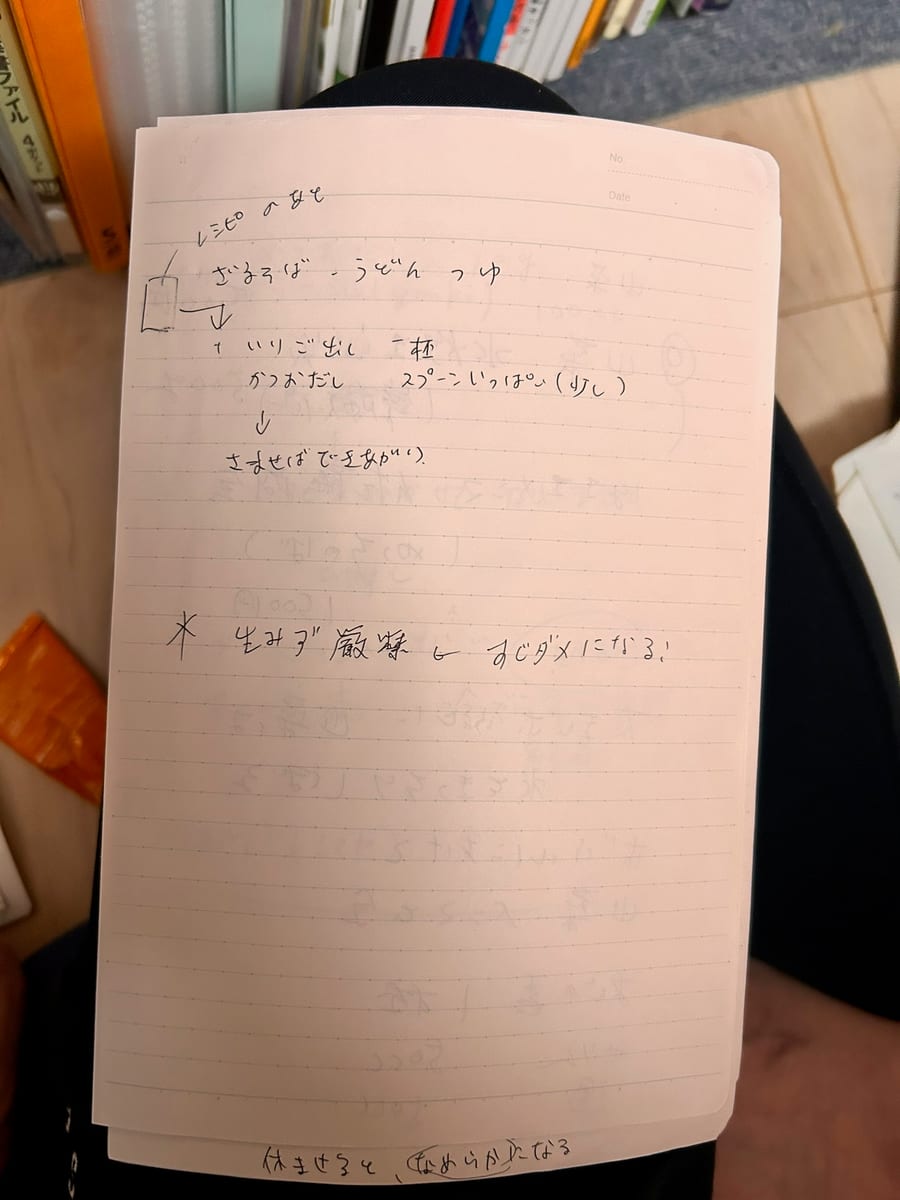 ファイル
No.
Date
レシピのあと
ざるそば・うどん つゆ
+ いりご出し 一杯
かつおだし スプーンいっぱい(少し)
↓
さませばできあがり
* 生みず厳禁 ← すぐダメになる!
休ませると、なめらかになる